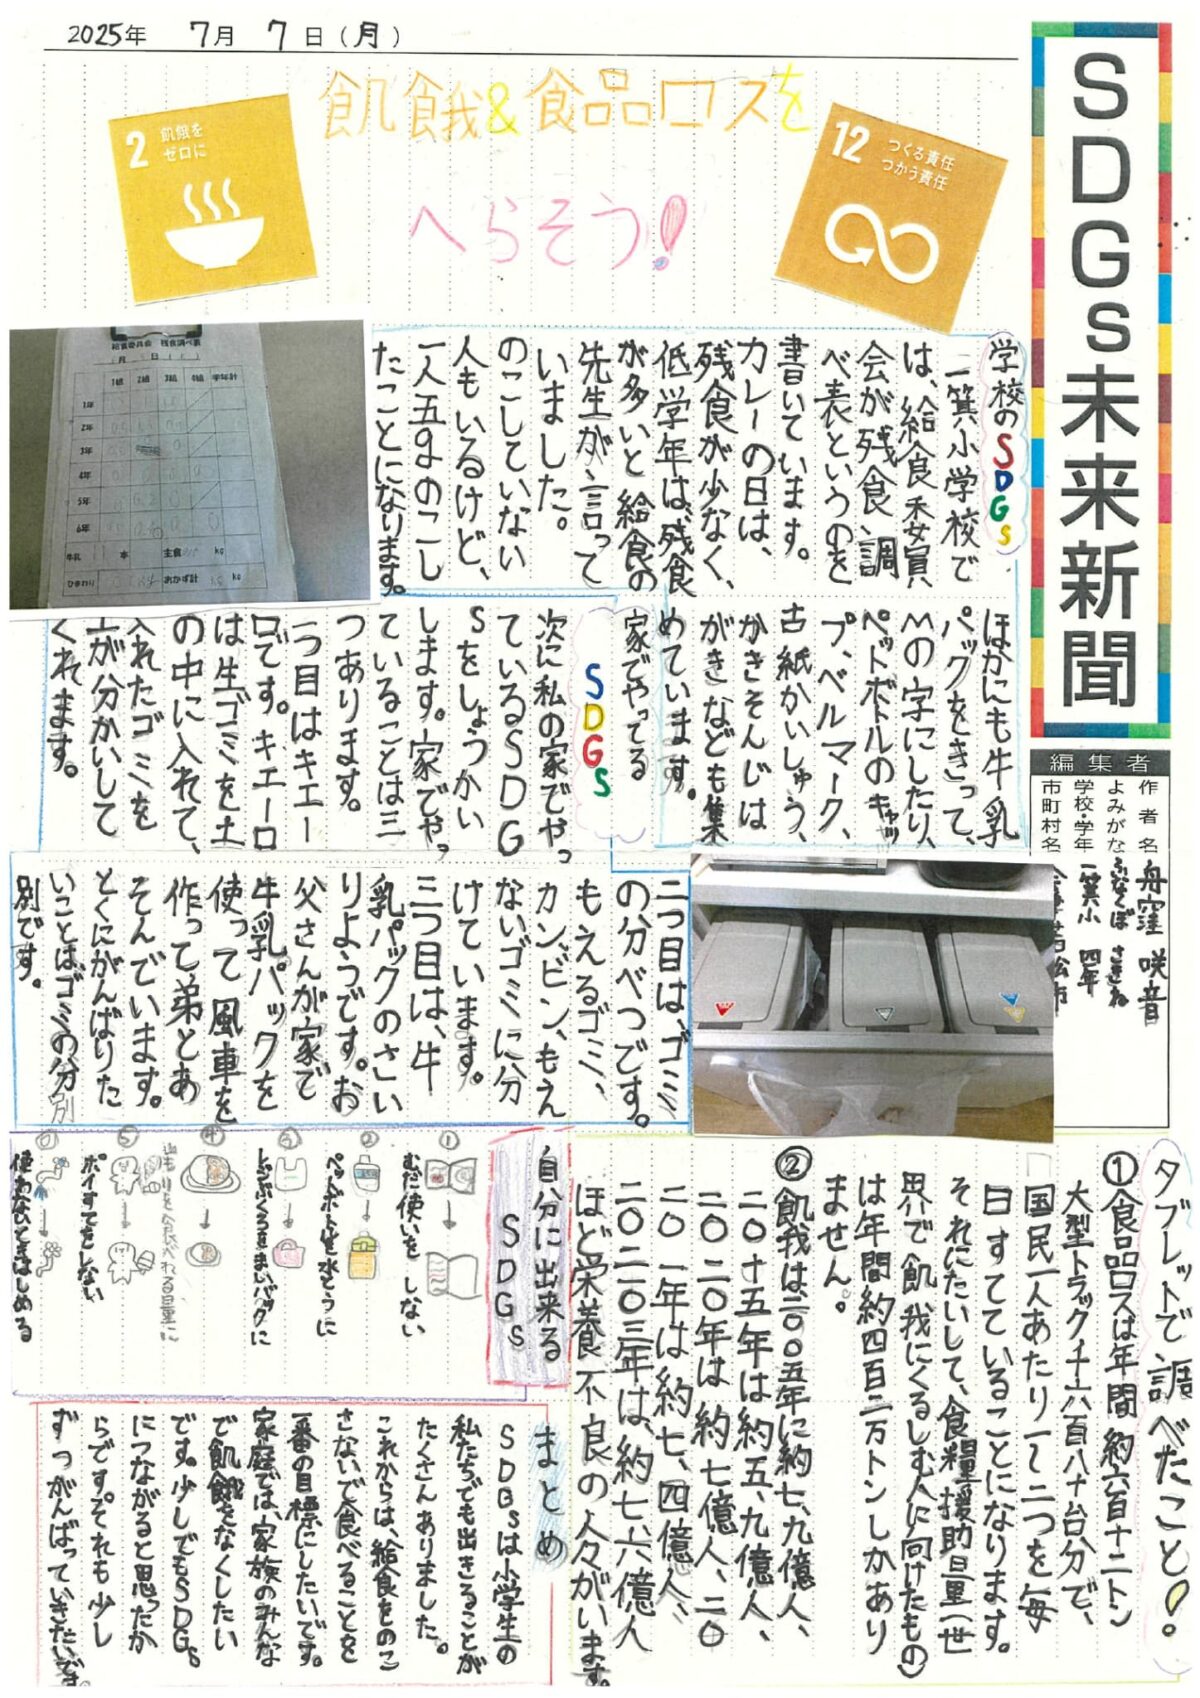 2025年 7月 7日(月)
SDGs未来新聞
編集者
作者名 舟窪 咲音
よみがな ふなくぼ さきね
学校・学年 一箕小 四年
市町村名
飢餓&食品ロスを
へらそう!
2 飢餓を
ゼロに
12 つくる責任
つかう責任
学校のSDGs
一箕小学校で
は、給食委員
会が残食調
べ表というのを
書いています。
カレーの日は、
残食が少なく、
低学年は、残食
が多いと給食の
先生が言って
いました。
のこしていない
人もいるけど、
一人五gのこし
たことになります。
給食委員会 残食調べ表
月 日
1組 2組 3組 4組 学年計
1年
2年
3年
4年
5年
6年
牛乳 本 主食 kg
ひまわり おかず計 kg
ほかにも牛乳
パックをきって、
Mの字にしたり、
ペットボトルのキャッ
プ、ベルマーク、
古紙かいしゅう、
かきそんじは
がきなども集
めています。
家でやってる
SDGs
次に私の家でやっ
ているSDG
sをしょうかい
します。家でやっ
ていることは三
つあります。
一つ目はキエー
ロです。キエーロ
は生ゴミを土
の中に入れて、
入れたゴミを
土が分かいして
くれます。
二つ目は、ゴミ
の分べつです。
もえるゴミ、
カンビン、もえ
ないゴミに分
けています。
三つ目は、牛
乳パックのさい
りようです。お
父さんが家で
牛乳パックを
使って風車を
作って弟とあ
そんでいます。
とくにがんばりた
いことはゴミの分別
別です。
タブレットで調べたこと!
①食品ロスは年間約六百十二トン
大型トラック千六百八十台分で、
国民一人あたり一て二つを毎
日すてていることになります。
それにたいして、食糧援助量(世
界で飢我にくるしむ人に向けたもの)
は年間約四百二万トンしかあり
ません。
②飢我は二〇〇五年に約七、九億人、
二〇十五年は約五、九億人、
二〇二〇年は約七億人、二〇
二〇一年は約七、四億人、
二〇二〇三年は、約七、六億人
ほど栄養不良の人々がいます。
自分に出来る
SDGs
①
むだ使いをしない
②
ペットボトルを水とうに
③
レジぶくろをまいバッグに
④
⑤
ポイすてをしない
使わないときはしめる
まとめ
SDGsは小学生の
私たちでも出きることが
たくさんありました。
これからは、給食をのこ
さないで食べることを
一番の目標にしたいです。
家庭では、家族のみんな
で飢餓をなくしたい
です。少しでもSDGs
につながると思ったか
らです。それも少し
ずつがんばっていきたいです。